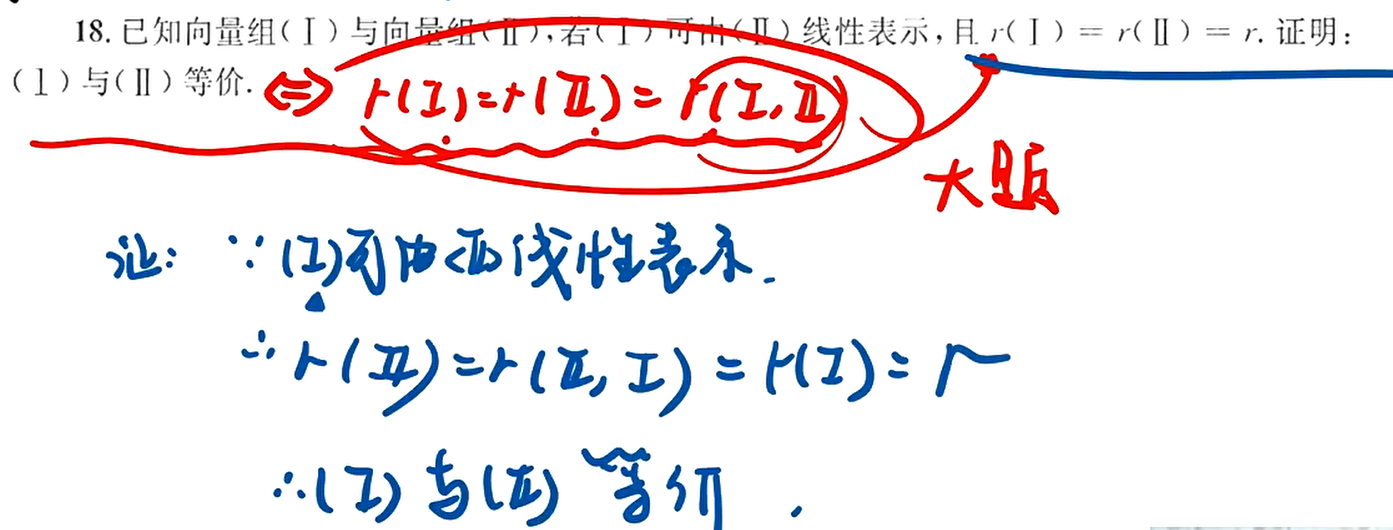 18. 已知向量组(Ⅰ)与向量组(Ⅱ),若(Ⅰ)可由(Ⅱ)线性表示,且 r(Ⅰ) = r(Ⅱ) = r. 证明:
(Ⅰ)与(Ⅱ)等价. ⇔ r(Ⅰ)=r(Ⅱ)=r(Ⅰ,Ⅱ)
大题
证: ∵(Ⅰ)可由(Ⅱ)线性表示.
∴ r(Ⅱ)=r(Ⅱ,Ⅰ)=r(Ⅰ)=r
∴(Ⅰ)与(Ⅱ)等价.